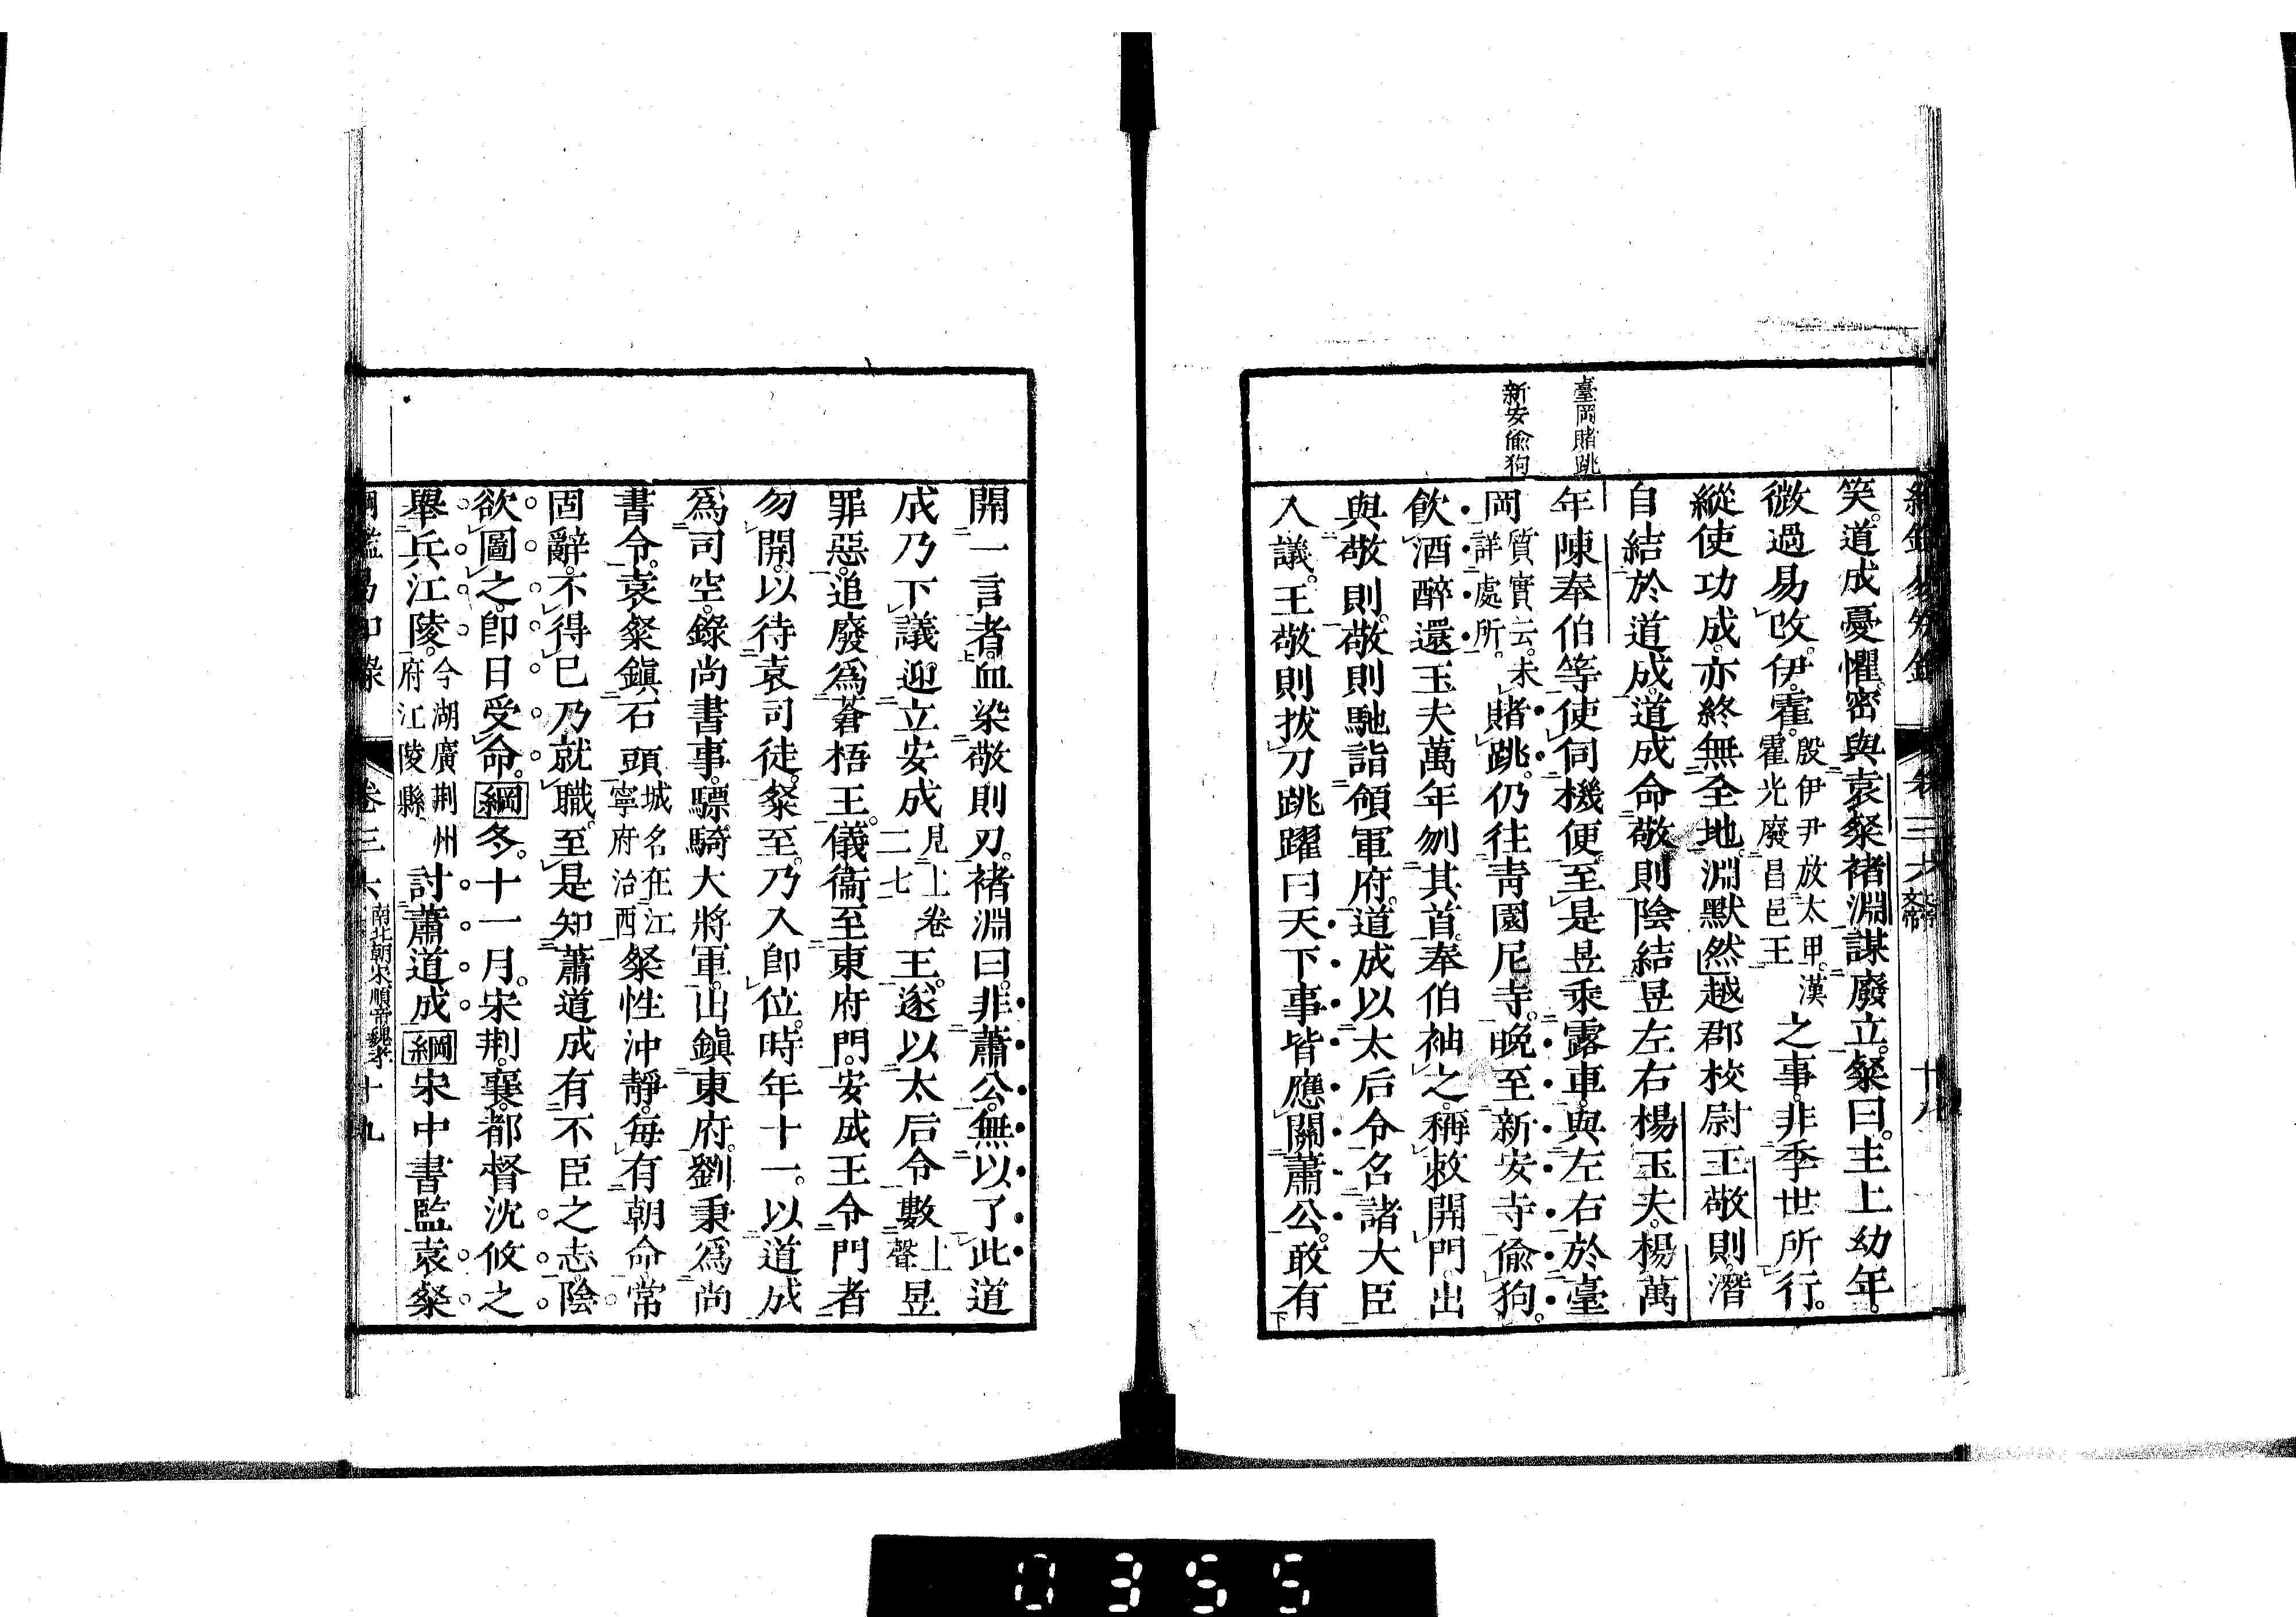 綱鑑易知錄 卷三六 文帝 十八
臺岡賭跳
新安偷狗
笑。道成憂懼。密與袁粲褚淵謀廢立。粲曰。主上幼年。
微過易改。伊。霍。殷伊尹放太甲。漢霍光廢昌邑王之事。非季世所行。
縱使功成。亦終無全地。淵默然。越郡校尉王敬則。潛
自結於道成。道成命敬則陰結昱左右楊玉夫。楊萬
年陳奉伯等。使伺機便。至是昱乘露車。與左右於臺
岡質實云。未詳處所。賭跳。仍往青園尼寺。晚至新安寺偷狗。
飲酒醉還。玉夫萬年刎其首。奉伯袖之。稱敕開門。出
與敬則。敬則馳詣領軍府。道成以太后令名諸大臣
入議。王敬則拔刀跳躍曰。天下事皆應關蕭公。敢有
開一言者。血染敬則刃。褚淵曰。非蕭公。無以了此。道
成乃下議。迎立安成見上卷二七王。遂以太后令數上聲昱
罪惡。追廢爲蒼梧王。儀衞至東府門。安成王令門者
勿開。以待袁司徒。粲至。乃入卽位。時年十一。以道成
爲司空。錄尚書事。驃騎大將軍。出鎭東府。劉秉爲尚
書令。袁粲鎭石頭城名在江寧府治西粲性沖靜。每有朝命。常
固辭。不得已乃就職。至是知蕭道成有不臣之志。陰
欲圖之。卽日受命。綱冬。十一月。宋荆。襄。都督沈攸之
舉兵江陵。今湖廣荆州府江陵縣討蕭道成。綱宋中書監袁粲
綱鑑易知錄 卷三六 南北朝宋順帝魏孝 十九
0355